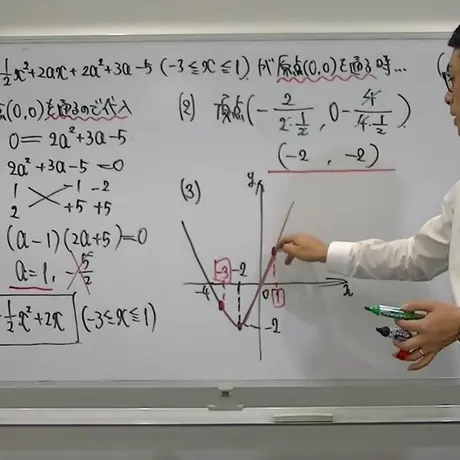 ½x²+2ax+2a²+3a-5 (-3≦x≦1) が原点(0,0)を通る時…
(0,0)を通るので代入
0=2a²+3a-5
2a²+3a-5=0
1 -1 -2
2 +5 +5
(a-1)(2a+5)=0
a=1, -5/2
½x²+2x (-3≦x≦1)
(2) 頂点(-2/(2·½), 0-4/(4·½))
(-2, -2)
(3)
y
-3 -2
-4 0 1 x
-2